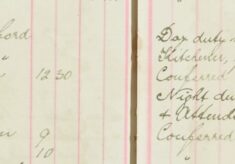 ford
" 12 30
" 9
" 10
Day duty
Kitchener,
Conferred
Night du
& Attenda
Conferred
"